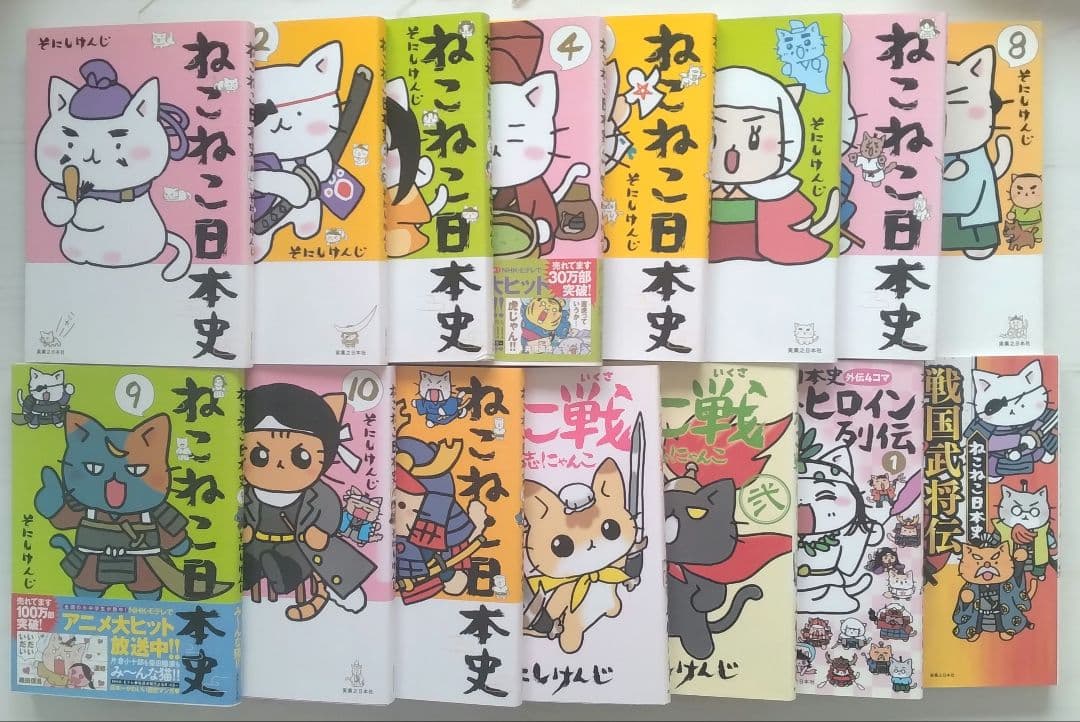 そにしけんじ
ねこねこ日本史
実業之日本社
2
そにしけんじ
実業之日本社
そにしけんじ
ねこねこ日本史
4
NHK・Eテレで
大ヒット
売れてます
30万部
突破!
虎じゃん!!
ねこねこ日本史
そにしけんじ
そにしけんじ
実業之日本社
ねこねこ日本史
8
そにしけんじ
実業之日本社
9
ねこねこ日本史
そにしけんじ
売れてます
100万部
突破!
NHK・Eテレで
アニメ大ヒット
放送中!!
み〜んな猫!!
10
そにしけんじ
実業之日本社
ねこねこ日本史
いくさ
戦
にゃんこ
しけんじ
いくさ
戦
にゃんこ
弐
んじ
本史
外伝4コマ
ヒロイン
列伝
1
実業之日本社
戦国武将伝
ねこねこ日本史
実業之日本社